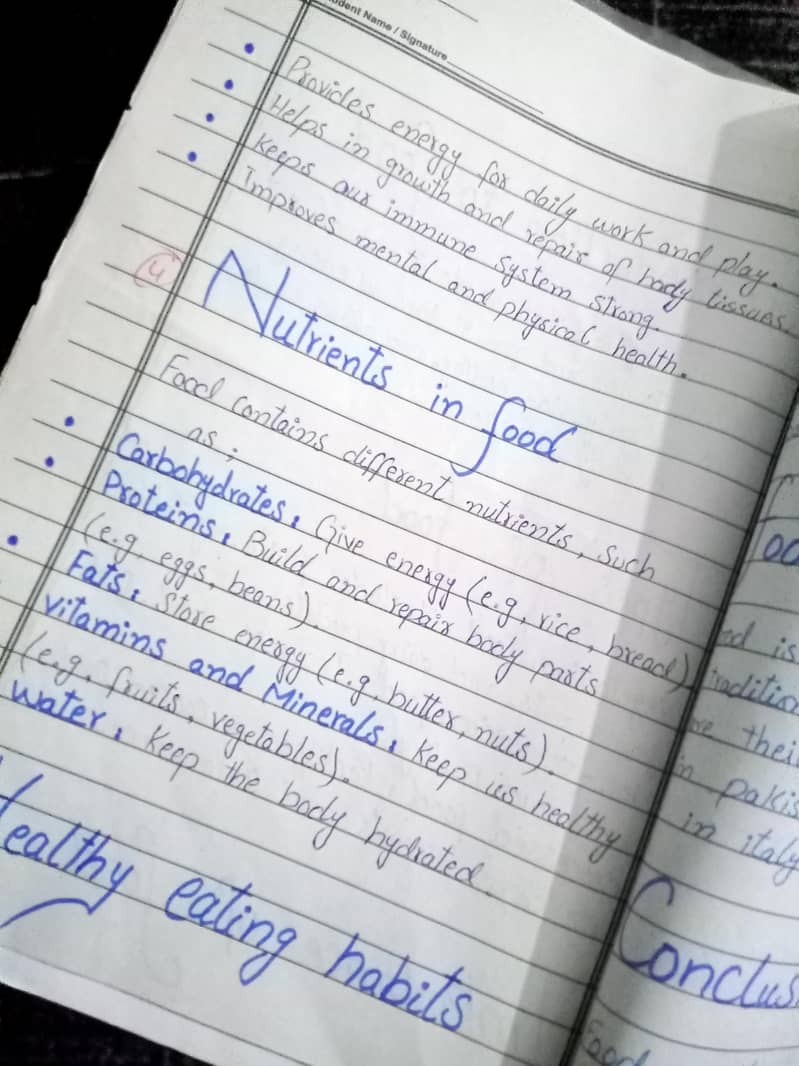 Student Name / Signature
Provides energy for daily work and play.
Helps in growth and repair of body tissues.
Keeps our immune system strong.
Improves mental and physical health.
4
Nutrients in food
Food contains different nutrients, such
as:
Carbohydrates: Give energy (e.g, rice, bread)
Proteins: Build and repair body parts
(e.g, eggs, beans).
Fats: Store energy (e.g, butter, nuts).
Vitamins and Minerals: Keep us healthy
(e.g, fruits, vegetables).
Water: Keep the body hydrated.
Healthy eating habits
is
thei
in pakis
in italy
Conclus
Food